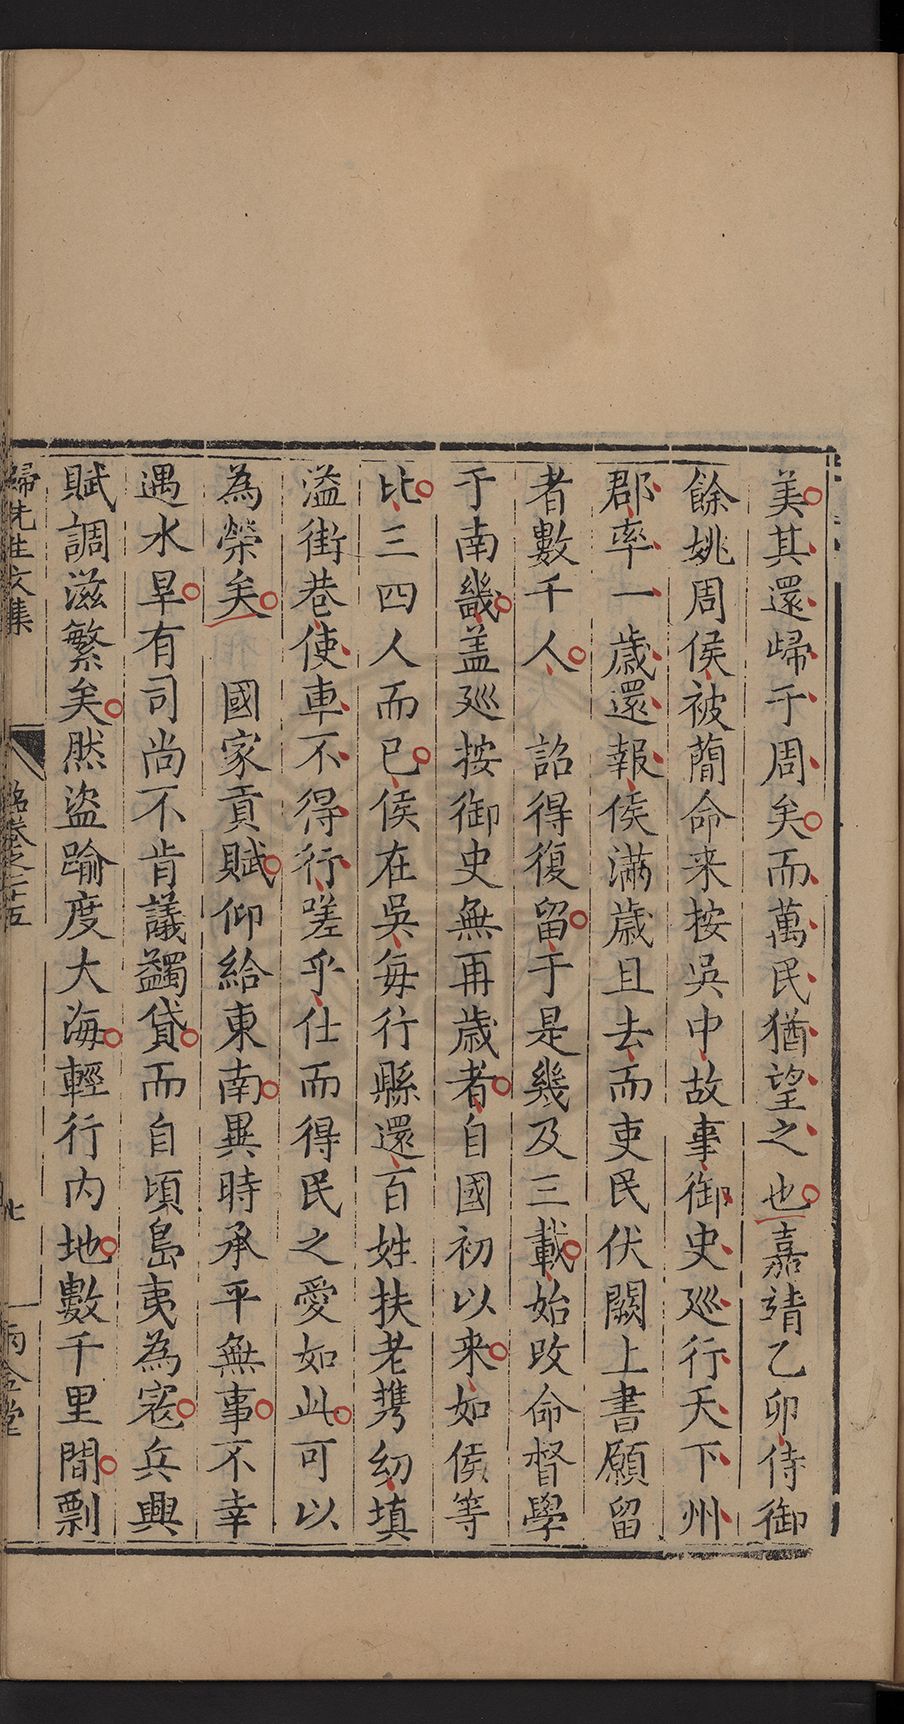 美其還歸于周矣而萬民猶望之也嘉靖乙卯侍御
餘姚周侯被簡命来按吳中故事御史巡行天下州
郡率一歲還報侯滿歲且去而吏民伏闕上書願留
者數千人　詔得復留于是幾及三載始改命督學
于南畿盖巡按御史無再歲者自國初以来如侯等
比三四人而已侯在吳每行縣還百姓扶老擕幼填
溢街巷使車不得行嗟乎仕而得民之愛如此可以
為榮矣　國家貢賦仰給東南異時承平無事不幸
遇水旱有司尚不肯議蠲貸而自頃島夷為寇兵興
賦調滋繁矣然盜踰度大海輕行内地數千里間剽
歸先生文集
卷之二十五